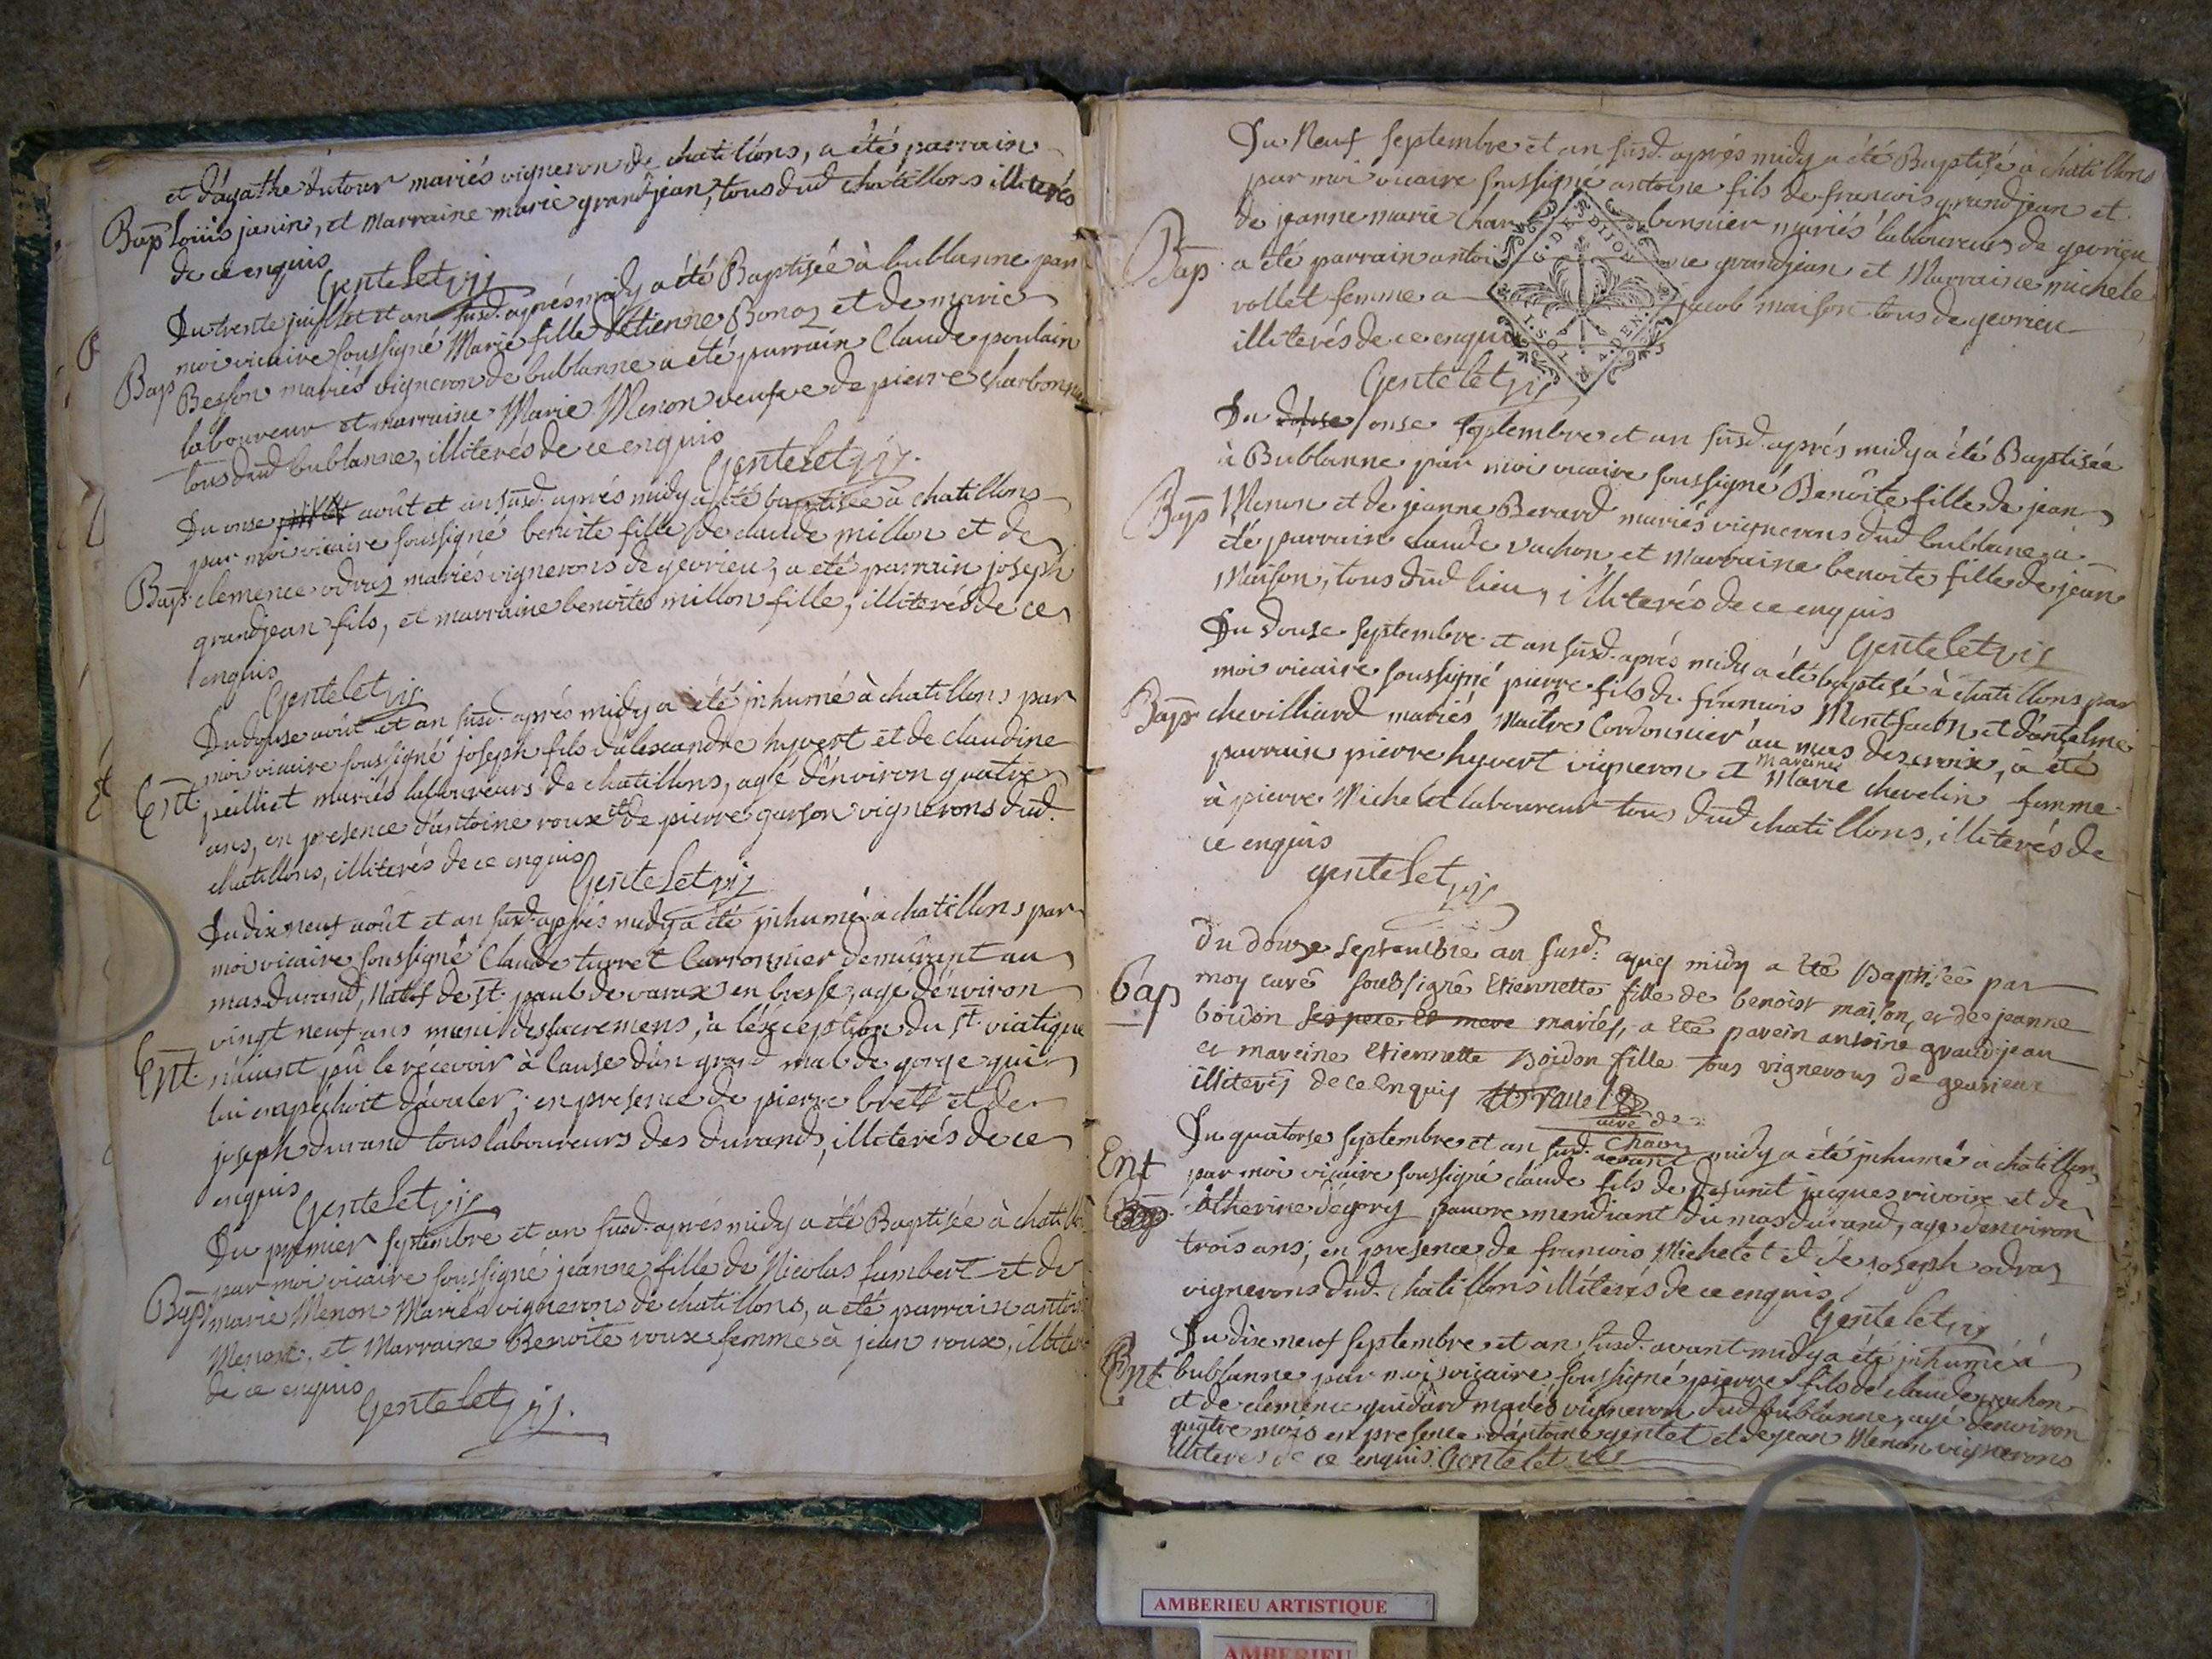 et d'agathe dutour mariés vigneron de chatillons, a été parrain
Bap Loüis janin, et Marraine marie grand jean, tous dud chatillons illiterés
de ce enquis
Gentelet vic
Du trente juillet et an susd. aprés midy a été Baptisée à bublanne par
moi vicaire soussigné Marie fille d'Etienne Bonaz et de marie
Bap Besson mariés vigneron de bublanne a été parrain Claude poulain
laboureur et marraine Marie Menon veufve de pierre charbonnier
tous dud bublanne, illiterés de ce enquis
Gentelet vic
Du onse août et an susd. aprés midy a été baptisée à chatillons
par moi vicaire soussigné benoite fille de claude millon et de
Bap clemence odraz mariés vignerons de gevrieu, a été parrain joseph
grandjean fils, et marraine benoite millon fille, illiterés de ce
enquis
Gentelet vic
Du douse août et an susd. aprés midy a été inhumé à chatillons par
moi vicaire soussigné joseph fils d'alexandre hyvert et de claudine
Ent peilliet mariés laboureurs de chatillons, agé d'environ quatre
ans, en presence d'antoine roux et de pierre garson vignerons dud.
chatillons, illiterés de ce enquis
Gentelet vic
Du dix neuf août et an susd. aprés midy a été inhumé a chatillons par
moi vicaire soussigné Claude turret Carronnier demeurant au
mas durand, Natif de st. paul de varax en bresse, agé d'environ
vingt neuf ans muni des sacremens, à l'éxception du st. viatique
Ent n'aiant pû le récevoir à cause d'un grand mal de gorge qui
lui empéchoit d'avaler; en presence de pierre brett et de
joseph durand tous laboureurs des durands, illiterés de ce
enquis
Gentelet vic
Du premier septembre et an susd. aprés midy a été Baptisée à chatillons
par moi vicaire soussigné jeanne fille de Nicolas humbert et de
Bap marie Menon Mariés vignerons de chatillons, a été parrain
Menon, et Marraine Benoite roux femme à jean roux, illiterés
de ce enquis
Gentelet vic.
Du Neuf septembre et an susd. aprés midy a été Baptisé à chatillons
par moi vicaire soussigné antoine fils de francois grand jean et
de jeanne marie Charbonnier mariés laboureurs de gevrieu
Bap a été parrain antoine grandjean et Marraine michele
rollet femme a jacob maison tous de gevrieu
illiterés de ce enquis
G. DE DIJON
Gentelet vic
Du onse septembre et an susd. aprés midy a été Baptisée
à Bublanne par moi vicaire soussigné Benoîte fille de jean
Bap Menon et de jeanne Berard mariés vignerons dud bublane, a
été parrain claude vachon, et Marraine benoite fille de jean
Maison, tous dud lieu, illiterés de ce enquis
Gentelet vic
Du douse septembre et an susd. aprés midy a été baptisé à chatillons par
moi vicaire soussigné pierre fils de francois Montfacon et d'antelme
Bap chevilliard mariés Maître Cordonnier au mas des croix, a été
parrain pierre hyvert vigneron et maraine Marie chevelin femme
à pierre Michelet laboureur tous dud chatillons, illiterés de
ce enquis
gentelet vic
du douze septembre an susd. apres midy a été Baptisée par
bap moy curé soubsigné Etiennette fille de benoist maison, et de jeanne
boidon ses pere et mere mariés, a été parein antoine grandjean
et mareine Etiennette Boidon fille tous vignerons de gevrieux
illiterés de ce Enquis
Du quatorse septembre et an susd. avant midy a été inhumé a chatillons
Ent par moi vicaire soussigné claude fils de defunt jacques rivoire et de
Catherine degory pauvre mendiant du mas durand, age d'environ
trois ans; en présence de francois Michelet et de joseph odraz
vignerons dud. chatillons illiterés de ce enquis
Gentelet vic
Du dix neuf septembre et an susd. avant midy a été inhumé à
Ent bublanne par moi vicaire soussigné pierre fils de claude vachon
et de clemence guidard mariés vigneron dud bublanne, agé d'environ
quatre mois en presence d'antoine gentet et de jean Menon vignerons
illiteres de ce enquis. Gentelet vic
AMBERIEU ARTISTIQUE
AMBERIEU